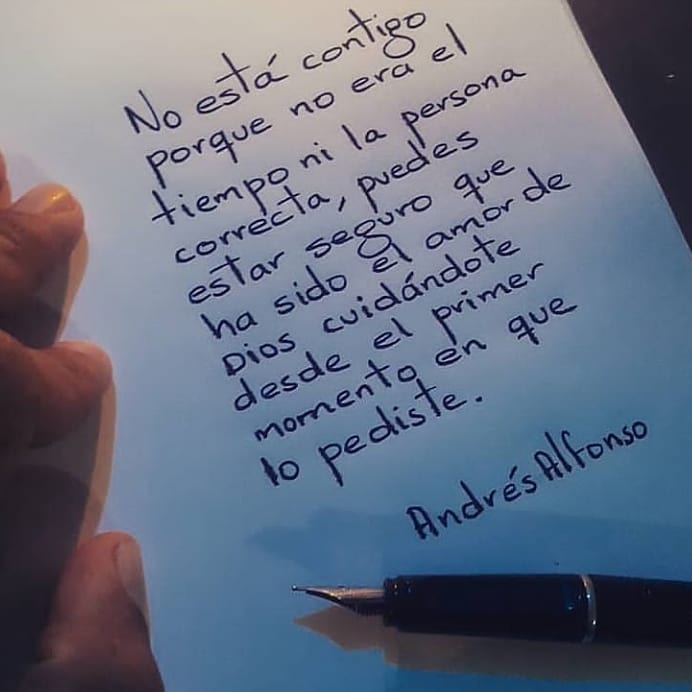 No está contigo
porque no era el
tiempo ni la persona
correcta, puedes
estar seguro que
ha sido el amor de
Dios cuidándote
desde el primer
momento en que
lo pediste.
Andrés Alfonso